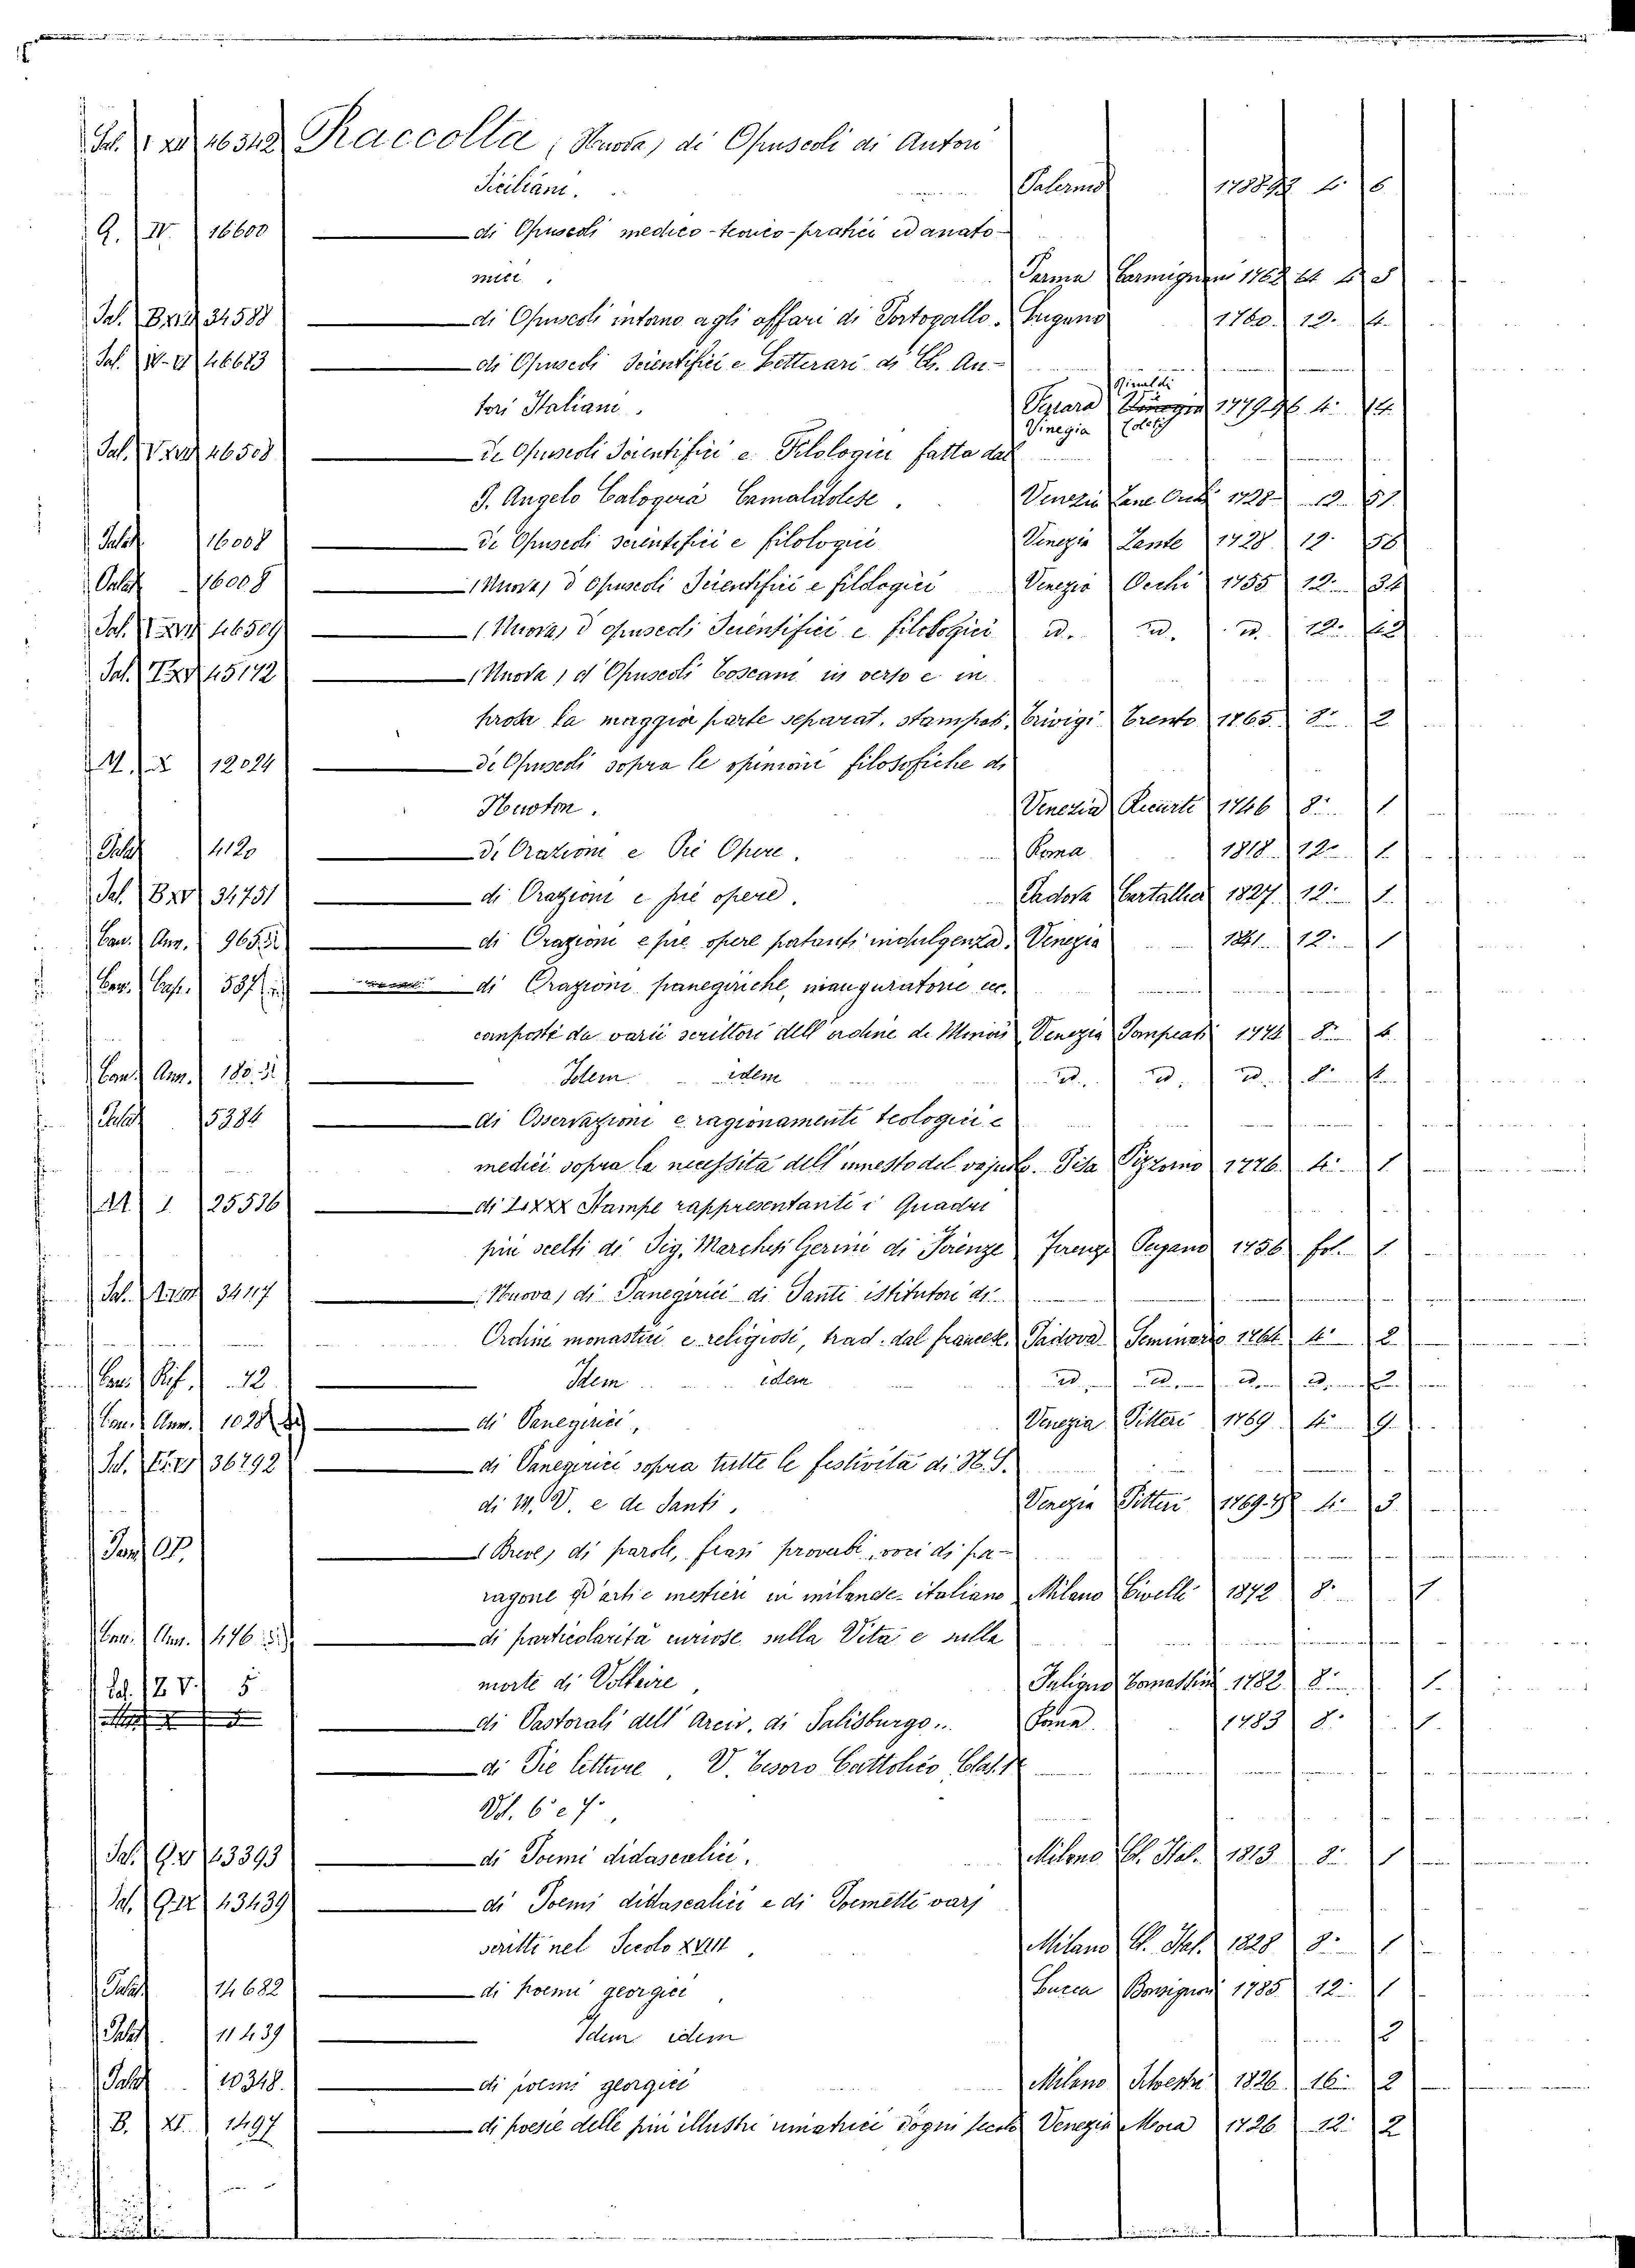 Raccolta, (Nuova) di Opuscoli di Autori
Siciliani. Palermo 1788 4. 6
G. IV. 16600 di Opuscoli medico-teorico-pratici ed anato-
mici. Parma Carmignani
Sal. 34588 di Opuscoli intorno agli affari di Portogallo. Lugano 1760. 12. 4.
Sal. 46623 di Opuscoli Scientifici e Letterari di Ch. Au-
Rinaldi
tori Italiani. Ferrara 1779-96. 4. 14.
Vinegia Coleti
Sal. 46508 De Opuscoli Scientifici e Filologici fatta dal
P. Angelo Calogerà Camaldolese. Venezia Zane 1728- 12. 51.
16008 De Opuscoli scientifici e filologici Venezia Zante 1728 12. 58
16008 (Nuova) d'Opuscoli Scientifici e filologici Venezia Occhi 1755 12. 34
Sal. 46509 (Nuova) d'opuscoli Scientifici e filologici id. id. id. 12. 42
Sal. 45172 (Nuova) d'Opuscoli Toscani in verso e in
prosa la maggior parte separat. stampat. Trevigi Trento 1865. 8. 2
M. X 12024 De Opuscoli sopra le opinioni filosofiche di
Newton. Venezia Recurti 1746 8. 1
4120 Di Orazioni e Pie Opere. Roma 1818. 12. 1
Sal. 34751 di Orazioni e pie opere. Padova Cartallier 1827. 12. 1.
Can. Ann. 965. di Orazioni e pie opere portanti indulgenza. Venezia 1841. 12. 1
Can. Cap. 587 di Orazioni panegiriche, inauguratorie ecc.
composte da varii scrittori dell'ordine de Minori Venezia Pompeati 1774 8.
Can. Ann. 180. Idem idem id. id. id. 8.
5384 di Osservazioni e ragionamenti teologici e
medici sopra la necessità dell'innesto del vajuolo. Pisa Pizzorno 1776. 4. 1.
M. 1 25536 di LXXX Stampe rappresentanti i Quadri
più scelti di Sig. Marchesi Gerini di Firenze Firenze Pagani 1756 fol. 1
Sal. 34117 (Nuova) di Panegirici di Santi istitutori di
Ordini monastici e religiosi, trad. dal francese. Padova Seminario 1764 4. 2
Can. Rif. 42 Idem idem id. id. id. id.
Can. Ann. 1028 di Panegirici, Venezia Pitteri 1769 4. 9.
Sal. 36792 di Panegirici sopra tutte le festività di N. S.
di M. V. e de Santi. Venezia Pitteri 1769. 4. 3.
(Breve) di parole, frasi proverbi, voci di pa-
ragone d'arti e mestieri in milanese-italiano Milano Civelli 1872 8. 1
Can. Ann. 476 di particolarità curiose sulla Vita e sulla
morte di Voltaire, Fuligno Tomassini 1782 8. 1.
5 di Pastorali dell'Arciv. di Salisburgo. Roma 1783 8. 1.
di Pie letture, V. Tesoro Cattolico Clas. 1
Vol. 6 e 7.
Sal. 43393 di Poemi didascalici. Milano Cl. Ital. 1813. 8. 1
Sal. 43439 di Poemi didascalici e di Poemetti varj
scritti nel Secolo XVIII. Milano Cl. Ital. 1828 8. 1
14682 di poemi georgici Lucca 1785. 12. 1
11439 Idem idem
10348. di poemi georgici Milano Silvestri 1826. 16. 2
B. XI. 1497 di poesie delle più illustri rimatrici d'ogni secolo Venezia Mora 1726 12. 2